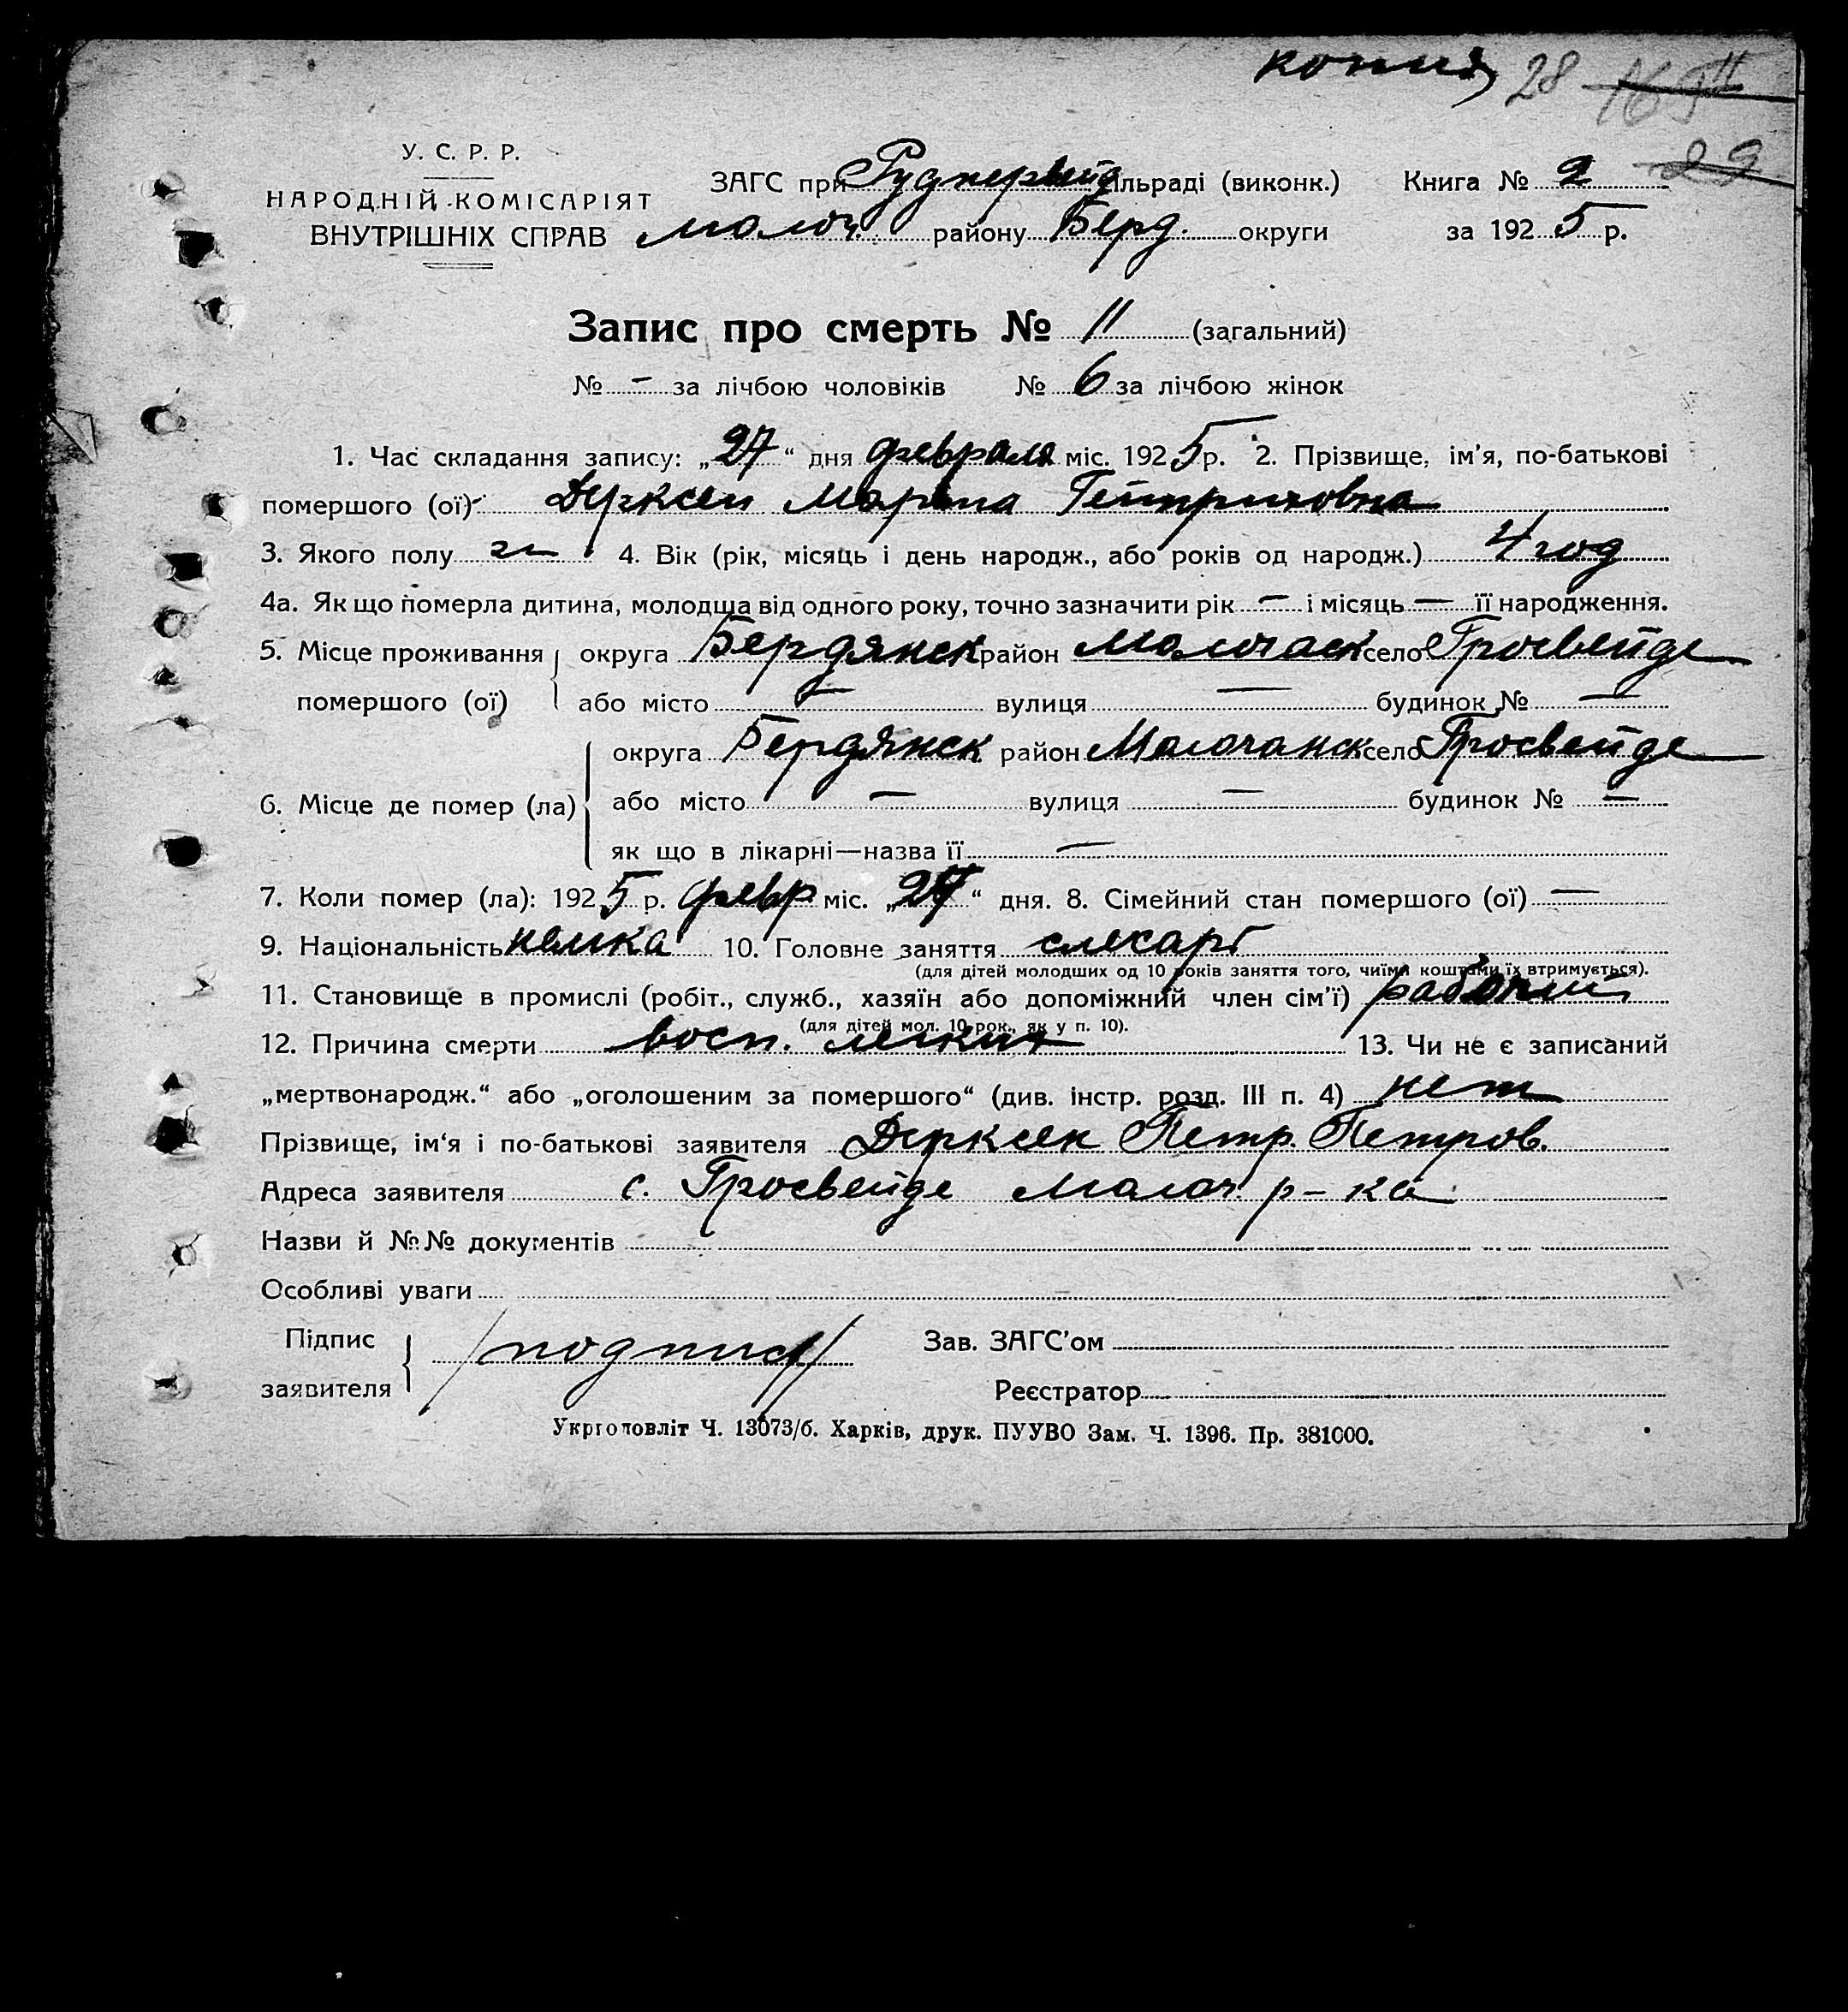 копия 28
У. С. Р. Р.
НАРОДНІЙ КОМІСАРІЯТ
ВНУТРІШНІХ СПРАВ
ЗАГС при Руднервейд ільраді (виконк.) Книга № 2 29
Молоч. району Берд. округи за 1925 р.
Запис про смерть № 11 (загальний)
№ - за лічбою чоловіків № 6 за лічбою жінок
1. Час складання запису: „27“ дня февраля міс. 1925 р. 2. Прізвище, ім'я, по-батькові
помершого (ої) Дерксен Марта Гейприховна
3. Якого полу ж 4. Вік (рік, місяць і день народж., або років од народж.) 4 год
4а. Як що померла дитина, молодща від одного року, точно зазначити рік — і місяць — її народження.
5. Місце проживання округа Бердянск район Молочаск село Гросвейде
помершого (ої) або місто — вулиця — будинок № —
округа Бердянск район Молочанск село Гросвейде
6. Місце де помер (ла) або місто — вулиця — будинок № —
як що в лікарні—назва її —
7. Коли помер (ла): 1925 р. февр міс. „27“ дня. 8. Сімейний стан помершого (ої) —
9. Національність немка 10. Головне заняття слесарь
(для дітей молодших од 10 років заняття того, чиїми коштами їх втримується).
11. Становище в промислі (робіт., служб., хазяїн або допоміжний член сім'ї) рабочий
(для дітей мол. 10 рок., як у п. 10).
12. Причина смерти восп. легких 13. Чи не є записаний
„мертвонародж.“ або „оголошеним за помершого“ (див. інстр. розд. III п. 4) нет
Прізвище, ім'я і по-батькові заявителя Дерксен Петр. Петров.
Адреса заявителя с. Гросвейде Молоч. р-ка
Назви й №№ документів
Особливі уваги
Підпис /подпись/ Зав. ЗАГС'ом
заявителя Реєстратор
Укрголовліт Ч. 13073/б. Харків, друк. ПУУВО Зам. Ч. 1396. Пр. 381000.